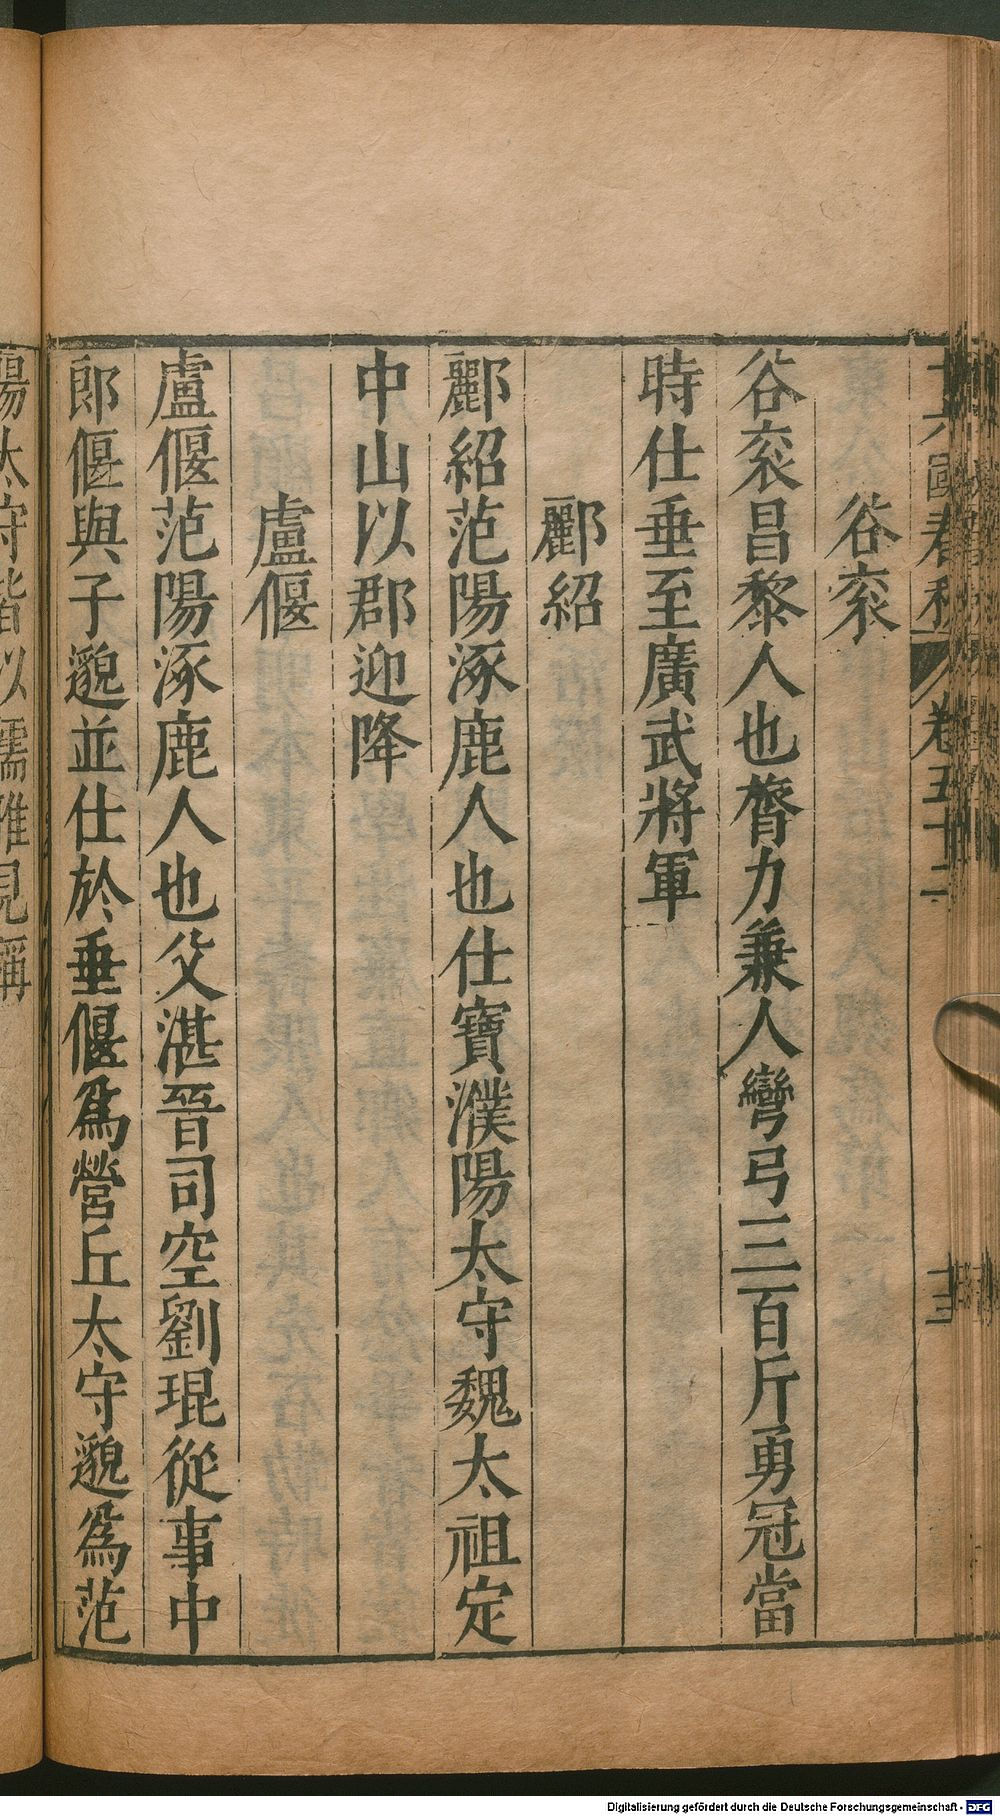 十六國春秋 卷五十二 十三
谷袞
谷袞昌黎人也膂力兼人彎弓三百斤勇冠當
時仕垂至廣武將軍
酈紹
酈紹范陽涿鹿人也仕寶濮陽太守魏太祖定
中山以郡迎降
盧偃
盧偃范陽涿鹿人也父湛晉司空劉琨從事中
郎偃與子邈並仕於垂偃爲營丘太守邈爲范
陽太守皆以儒雅見稱
Digitalisierung gefördert durch die Deutsche Forschungsgemeinschaft - DFG